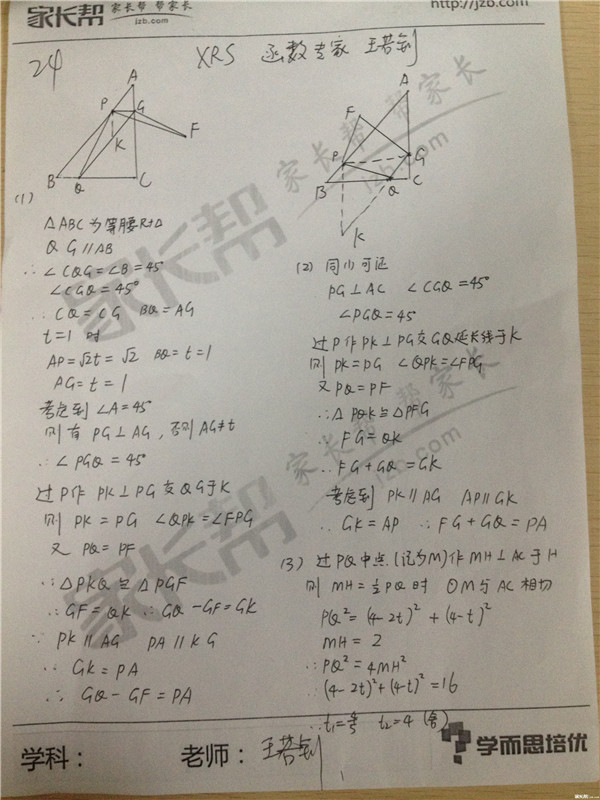 家长帮 家长帮 帮家长
jzb.com
http://jzb.com
24
XRS 函数专家 王若钊
A
P G
K
F
B Q C
A
F
P G
B Q C
K
(1)
△ABC为等腰Rt△
QG∥AB
∴∠CQG=∠B=45°
∠CGQ=45°
∴CQ=CG BQ=AG
t=1 时
AP=√2t=√2 BQ=t=1
AG=t=1
考虑到∠A=45°
则有 PG⊥AG,否则AG≠t
∴∠PGQ=45°
过P作 PK⊥PG交QG于K
则 PK=PG ∠QPK=∠FPG
又 PQ=PF
∴△PKQ≌△PGF
∴GF=QK ∴GQ-GF=GK
∵PK∥AG PA∥KG
∴GK=PA
∴GQ-GF=PA
(2) 同(1)可证
PG⊥AC ∠CGQ=45°
∠PGQ=45°
过P作PK⊥PG交GQ延长线于K
则 PK=PG ∠QPK=∠FPG
又PQ=PF
∴△PQK≌△PFG
∴FG=QK
∴FG+GQ=GK
考虑到 PK∥AG AP∥GK
∴GK=AP ∴FG+GQ=PA
(3) 过PQ中点(记为M)作MH⊥AC于H
则 MH=½PQ时 ⊙M与AC相切
PQ²=(4-2t)²+(4-t)²
MH=2
∴PQ²=4MH²
∴(4-2t)²+(4-t)²=16
∴t₁=4/5 t₂=4 (舍)
学科: 老师: 王若钊
学而思培优